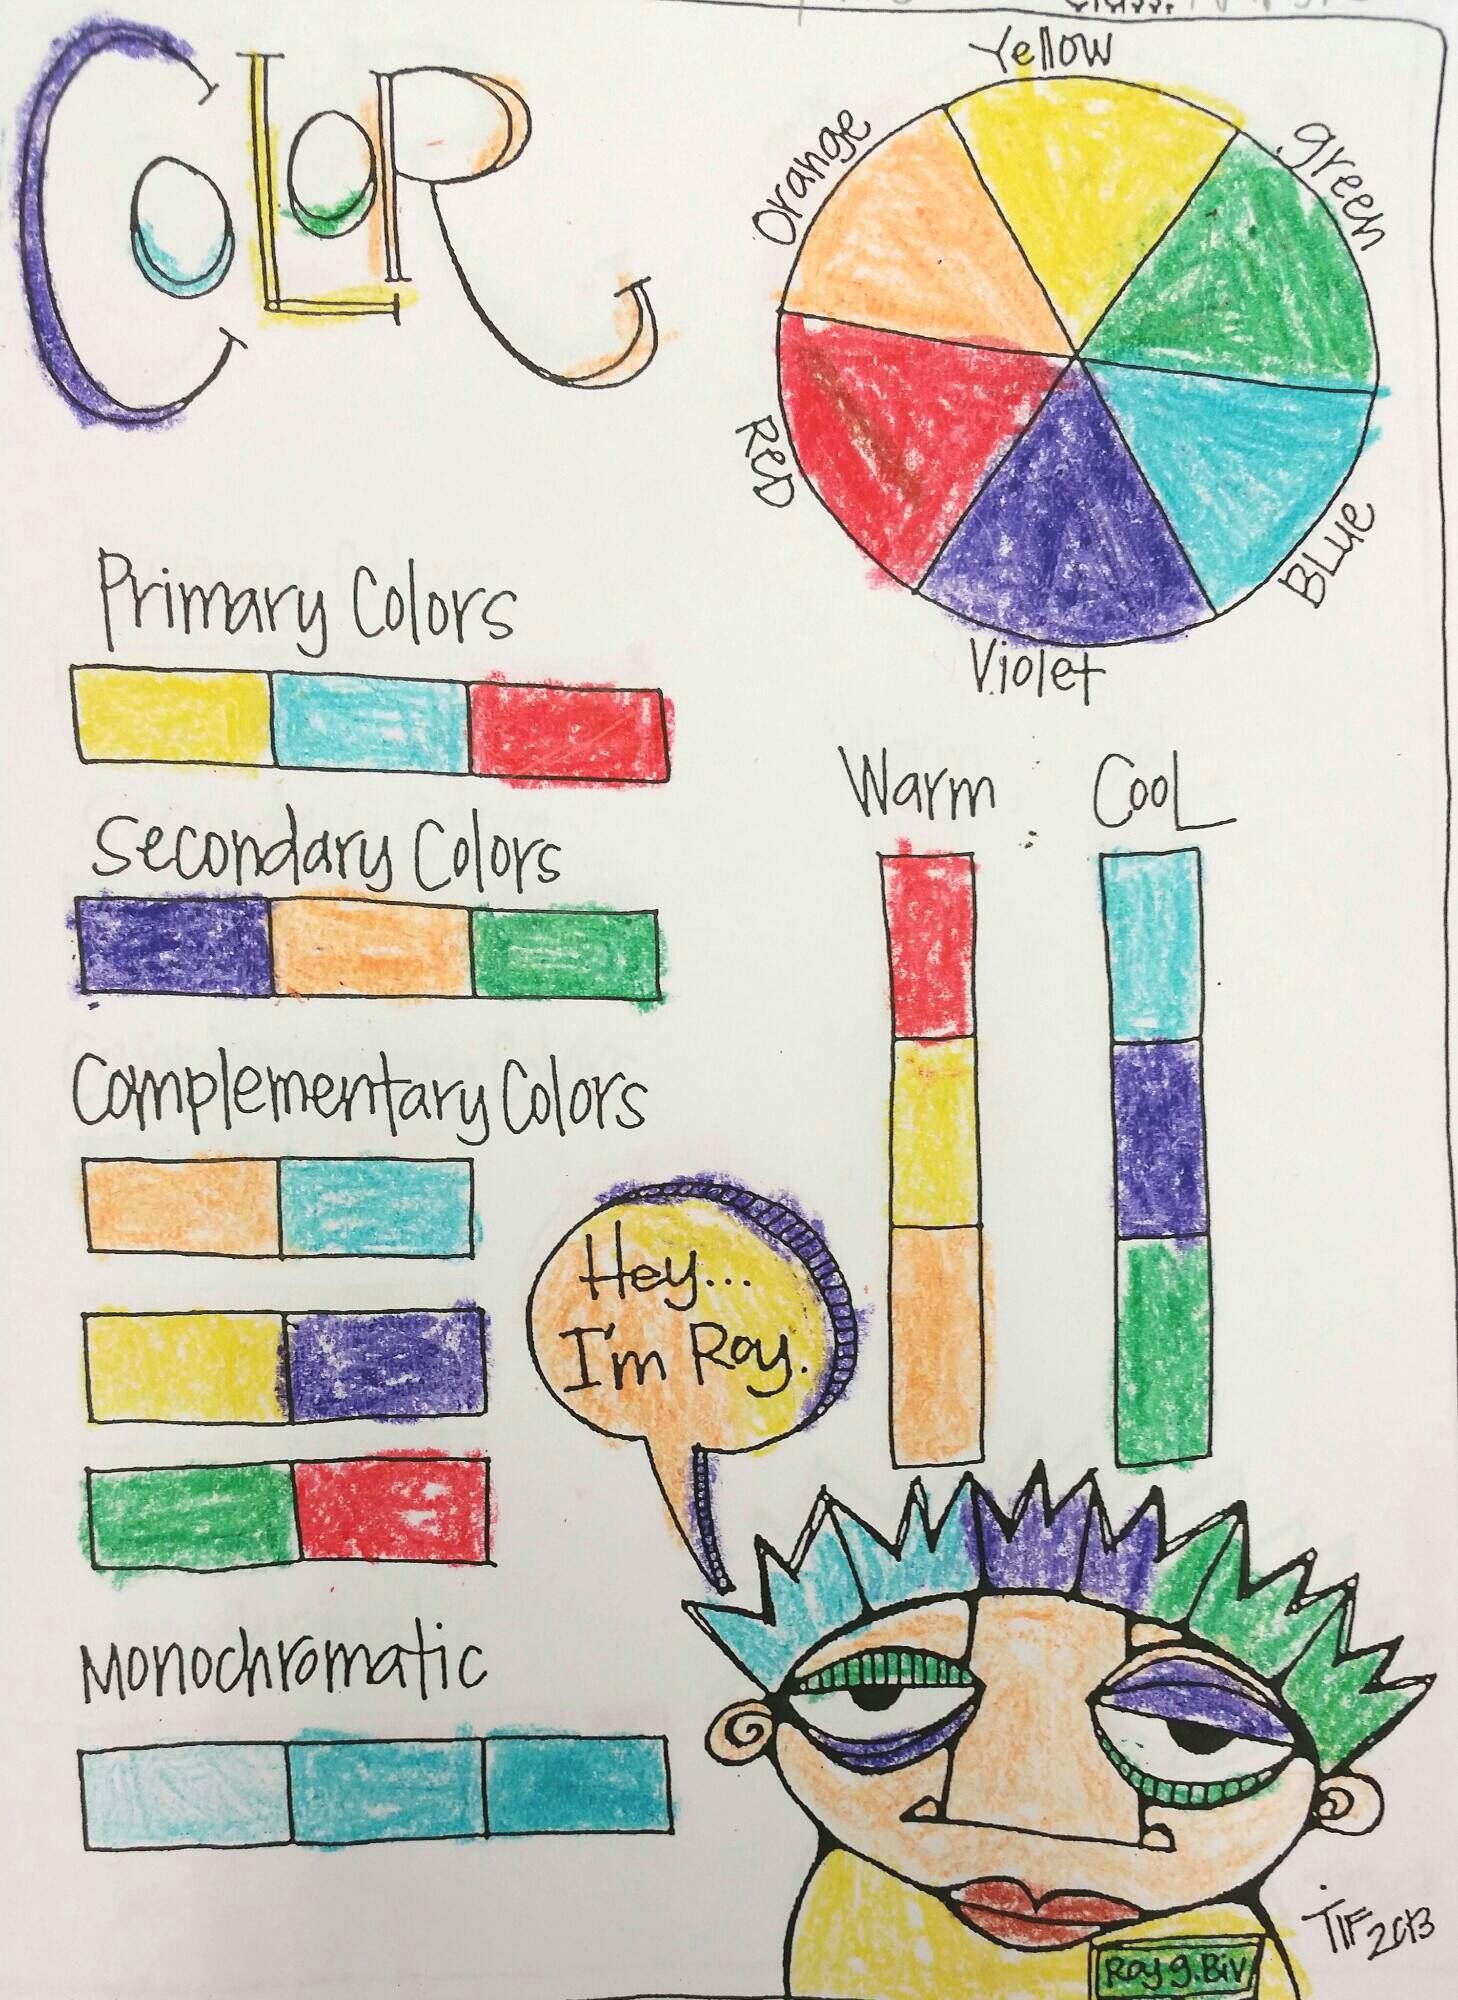 Class:
COLOR
Yellow
Orange
green
RED
BLue
Violet
Primary Colors
Secondary Colors
Complementary Colors
Monochromatic
Warm
CooL
Hey...
I'm Roy.
Roy g. Biv
TIF 2013